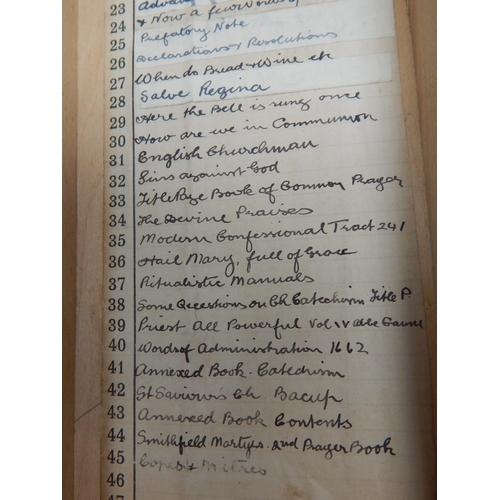 23 Advan
24 & Now a few Words of
25 Prefatory Note
26 Declarations & Resolutions
27 When do Bread & Wine etc
28 Salve Regina
29 Here the Bell is rung once
30 How are we in Communion
31 English Churchman
32 Sins against God
33 Title Page Book of Common Prayer
34 The Devine Praises
35 Modern Confessional Tract 241
36 Hail Mary, full of Grace
37 Ritualistic Manuals
38 Some Questions on Ch Catechism Title P.
39 Priest All Powerful Vol IV
40 Words of Administration 1662
41 Annexed Book. Catechism
42 St Saviours Ch Bacup
43 Annexed Book Contents
44 Smithfield Martyrs 2nd Prayer Book
45 Copes & Mitres
46
47